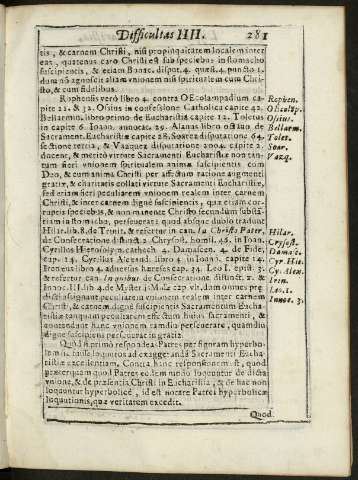 Difficultas IIII. 281
tis, & carnem Christi, nisi propinquitatem localem inter
eas, quatenus caro Christi est sub speciebus in stomacho
suscipientis, & etiam Bonac. disput. 4. quæst. 4. puncto 1.
dum nõ agnoscit aliam vnionem nisi spiritualem cum Chri-
sto, & cum fidelibus.
Rophensis verò libro 4. contra OEcolampadium ca-
pite 21. & 32. Osius in confessione Catholica capite 42.
Bellarmin. libro primo de Eucharistia capite 12. Toletus
in capite 6. Ioann. annotat. 29. Alanus libro octauo de
Sacrament. Eucharistiæ capite 28. Suarez disputatione 64.
sectione tertia, & Vazquez disputatione 204. capite 2.
docent, & meritò virtute Sacramenti Eucharistiæ non tan-
tum fieri vnionem spiritualem animæ suscipientis cum
Deo, & cum anima Christi per affectum ratione augmenti
gratiæ, & charitatis collati virtute Sacramenti Eucharistiæ,
sed etiam fieri peculiarem vnionem realem inter carnem
Christi, & inter carnem dignè suscipientis, quæ etiam cor-
ruptis speciebus, & non manente Christo secundum substã-
tiam in stomacho, perseuerat, quod absque dubio tradunt
Hilar. lib. 8. de Trinit. & refertur in can. In Christo Pater,
de Consecratione distinct. 2. Chrysost. homil. 45. in Ioan.
Cyrillus Hierosolym. cathech. 4. Damascen. 4. de Fide,
cap. 14. Cyrillus Alexand. libro 4. in Ioann. capite 14.
Irenæus libro 4. aduersus hæreses cap. 34. Leo I. epist. 23.
& refertur can. In quibus de Consecratione distinct. 2. &
Innoc. III. lib. 4. de Myster. js Missæ cap. vlt. dum omnes præ-
dicti assignant peculiarem vnionem realem inter carnem
Christi, & carnem dignè suscipientis Sacramentum Eucha-
ristiæ tanquam peculiarem effectum huius Sacramenti, &
contendunt hanc vnionem tamdiu perseuerare, quamdiu
dignè suscipiens perseuerat in gratia.
Quòd si primò respondeas Patres per figuram hyperbo-
icam fuisse loquutos ad exaggerandã Sacramenti Eucha-
ristiæ excellentiam. Contra hanc responsionem est, quod
præterquam quod Patres eodem modo loquuntur de dicta
vnione, & de præsentia Christi in Eucharistia, & de hac non
loquuntur hyperbolicè, id est notare Patres hyperbolicæ
loquutionis, quæ veritatem excedit.
Quod.
Rophen.
OEcolãp.
Osius.
Bellarm.
Tolet.
Soar.
Vazq.
Hilar.
Crysost.
Damasc.
Cyr. Hie.
Cy. Alex.
Iren.
Leo. 1.
Innoc. 3.